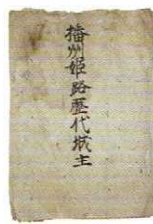 播州姫路歴代城主